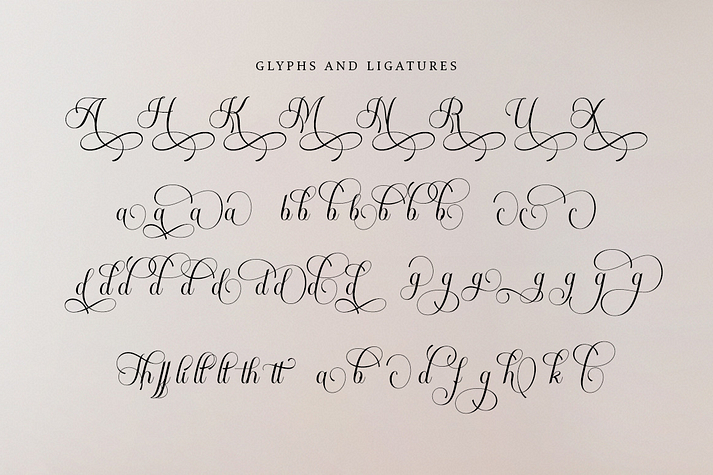 GLYPHS AND LIGATURES
A H K M N R U X
a a a a b b b b b b b c c c
d d d d d d d d d d d g g g g g g g
Th ff li ll lt th tt a b c d f g h k l